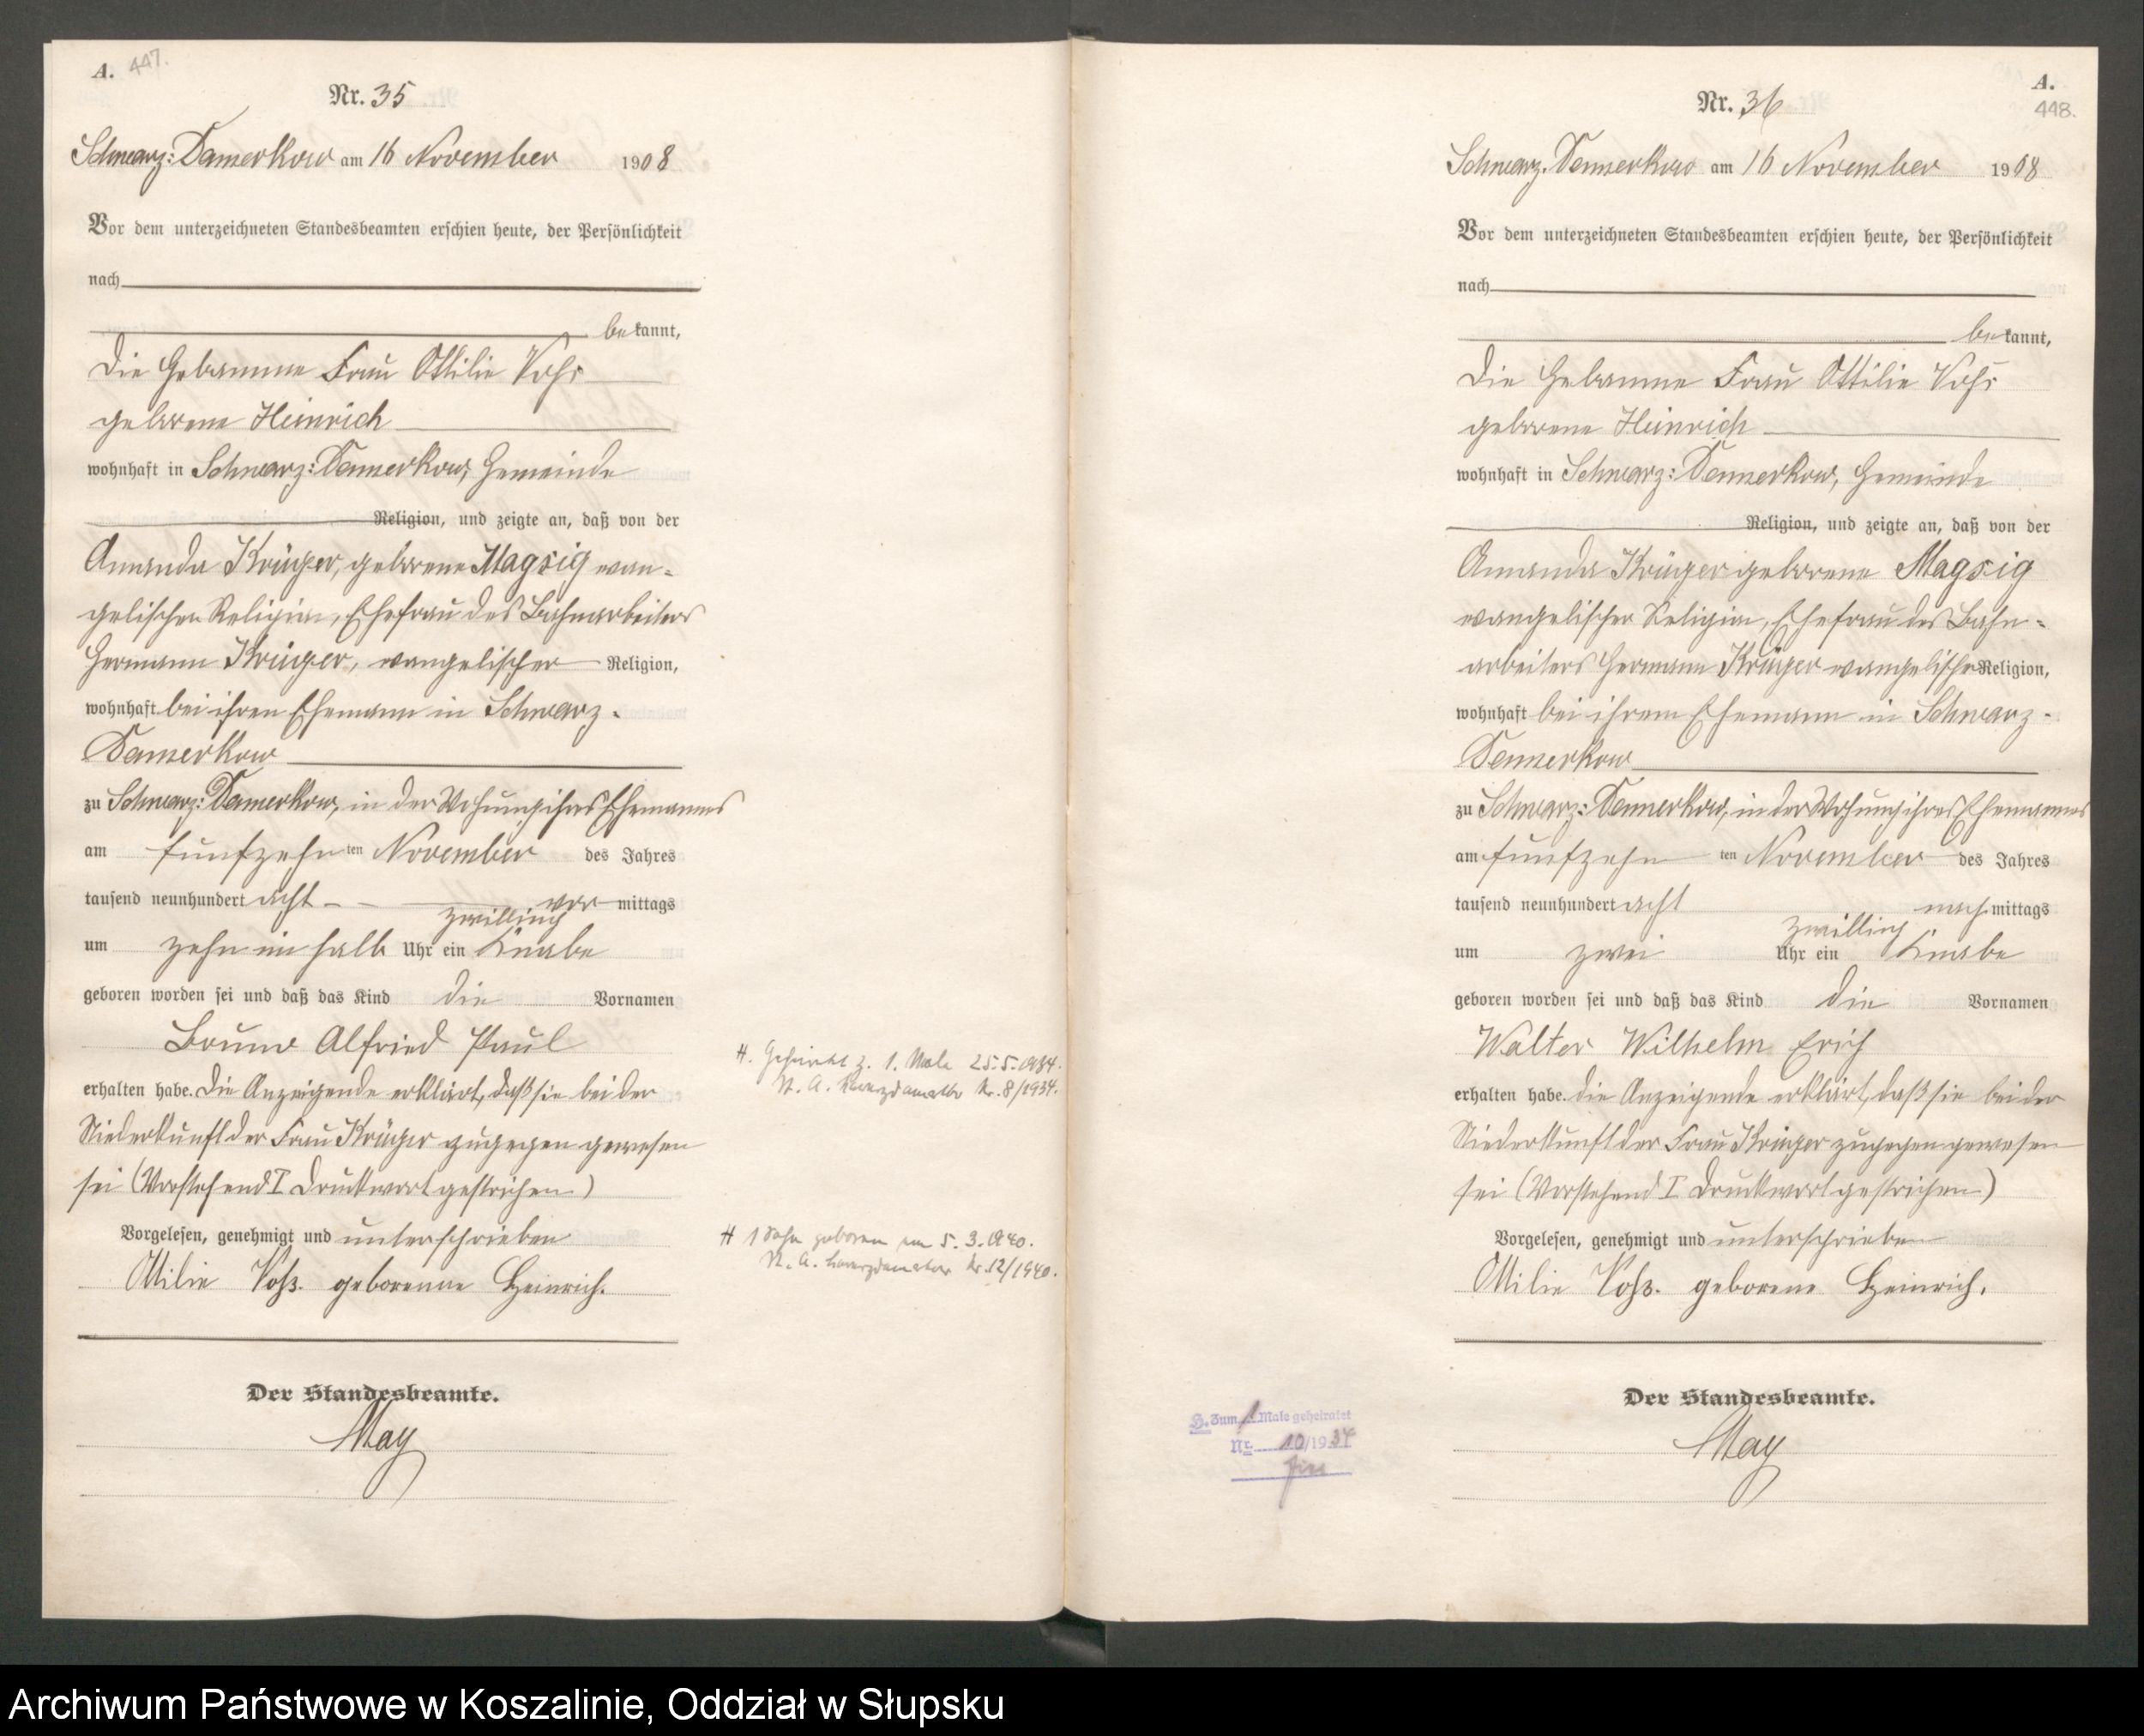 A. 447.
Nr. 35
Schwarz: Damerkow am 16 November 1908
Vor dem unterzeichneten Standesbeamten erschien heute, der Persönlichkeit
nach
bekannt,
die Hebamme Frau Ottilie Voß
geborene Heinrich
wohnhaft in Schwarz: Damerkow, Gemeinde
Religion, und zeigte an, daß von der
Amanda Krüger, geborene Magsig evan-
gelischer Religion, Ehefrau des Bahnarbeiters
Hermann Krüger, evangelischer Religion,
wohnhaft bei ihren Ehemann in Schwarz-
Damerkow
zu Schwarz: Damerkow, in der Wohnung ihres Ehemannes
am fünfzehn ten November des Jahres
tausend neunhundert acht vor mittags
zwilling
um zehn ein halb Uhr ein Knabe
geboren worden sei und daß das Kind die Vornamen
Bruno Alfried Paul
erhalten habe. Die Anzeigende erklärt, daß sie bei der
Niederkunft der Frau Krüger zugegen gewesen
sei (Vorstehend 1 Druckwort gestrichen)
Vorgelesen, genehmigt und unterschrieben
Ottilie Voß. geborenne Heinrich.
Der Standesbeamte.
May
H. Geheiratet z. 1. Male 25.5.1934.
St. A. Nr. 8/1934.
H 1 Sohn geboren am 5.3.1940.
St. A. Nr. 12/1940.
A.
448.
Nr. 36
Schwarz. Damerkow am 16 November 1908
Vor dem unterzeichneten Standesbeamten erschien heute, der Persönlichkeit
nach
bekannt,
die Hebamme Frau Ottilie Voß
geborene Heinrich
wohnhaft in Schwarz: Damerkow, Gemeinde
Religion, und zeigte an, daß von der
Amanda Krüger geborene Magsig
evangelischer Religion, Ehefrau des Bahn-
arbeiters Hermann Krüger evangelischer Religion,
wohnhaft bei ihrem Ehemann in Schwarz-
Damerkow
zu Schwarz: Damerkow, in der Wohnung ihres Ehemannes
am fünfzehn ten November des Jahres
tausend neunhundert acht nach mittags
zwilling
um zwei Uhr ein Knabe
geboren worden sei und daß das Kind die Vornamen
Walter Wilhelm Erich
erhalten habe. die Anzeigende erklärt, daß sie bei der
Niederkunft der Frau Krüger zugegen gewesen
sei (Vorstehend 1 Druckwort gestrichen)
Vorgelesen, genehmigt und unterschrieben
Ottilie Voß. geborene Heinrich.
Der Standesbeamte.
May
H. Zum 1. Male geheiratet
Nr. 10/1934
Archiwum Państwowe w Koszalinie, Oddział w Słupsku